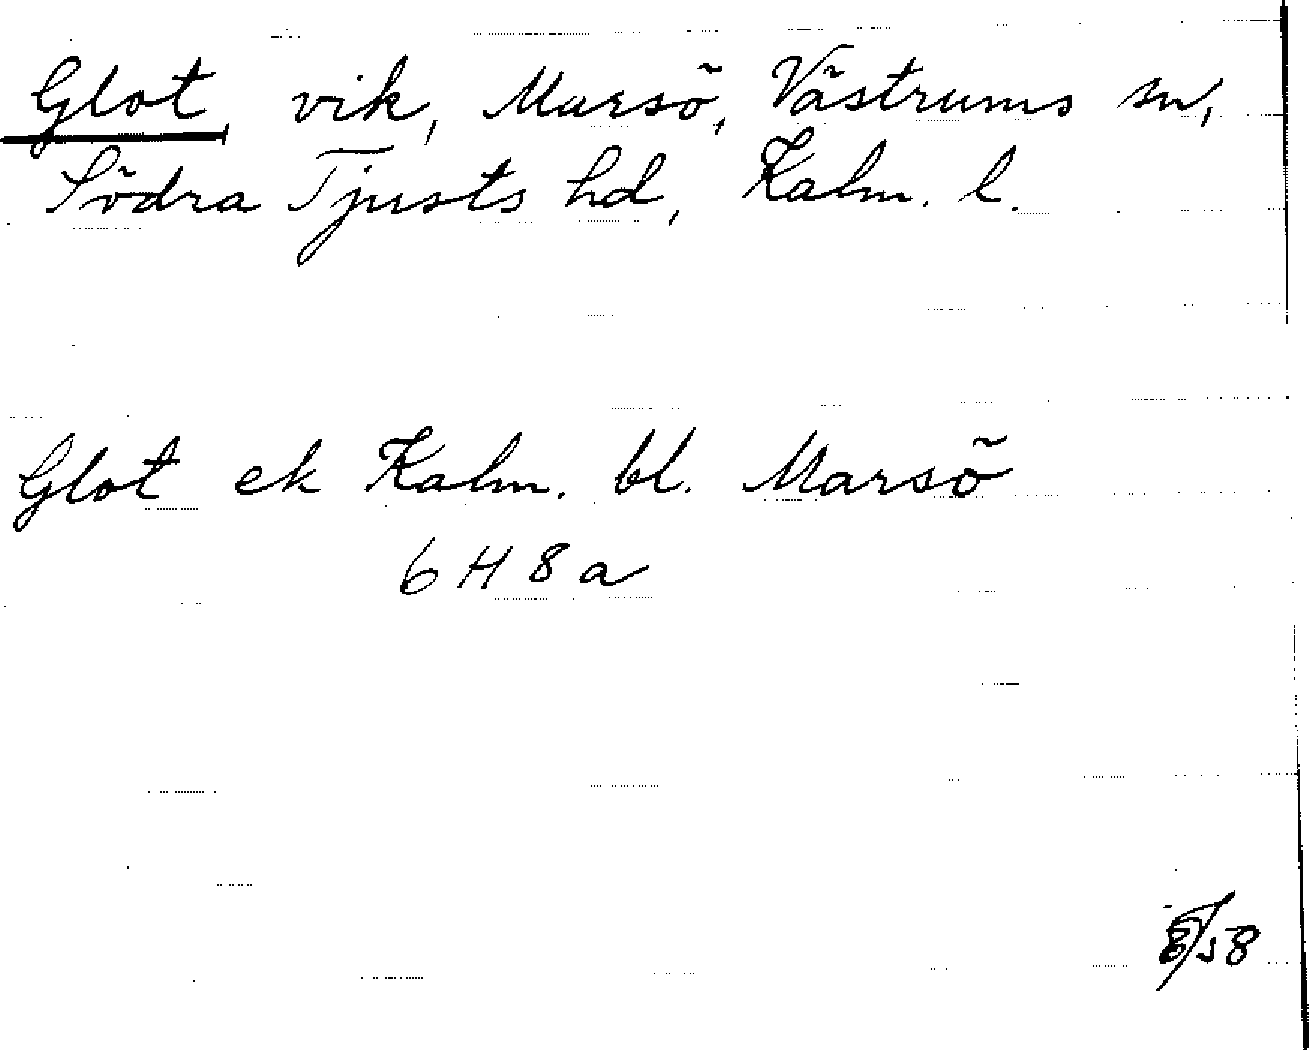 Glot, vik, Marsö, Västrums sn,
Södra Tjusts hd, Kalm. l.
Glot ek Kalm. bl. Marsö
6 H 8 a